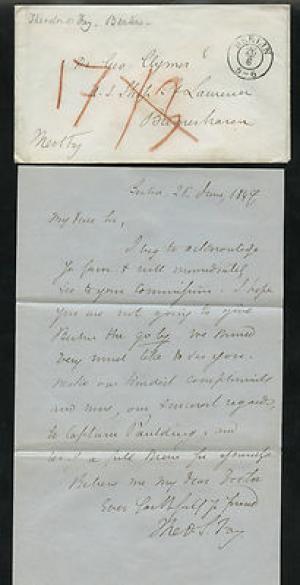 Theodore Fay. Berlin.
BERLIN
5-6
Dr Geo Clymer
17 13
U. S. Ship St Lawrence
Bremerhaven
Berlin 25 June, 1849
My dear Sir,
I beg to acknowledge
yr favor & will immediately
see to your commission. I hope
you are not going to give
Berlin the go by. We should
very much like to see you.
Make our kindest compliments
and our sincerest regards,
to Captain Paulding, and
a full for yourself
Believe me my dear Doctor
Ever faithfully yr friend
Theo. S. Fay